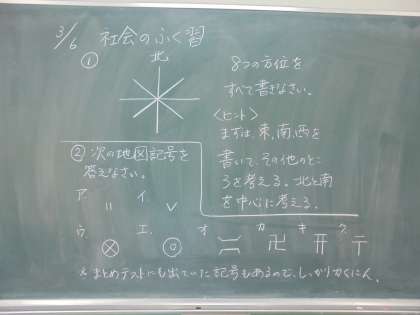 3/6 社会のふく習
①
北
8つの方位を
すべて書きなさい。
<ヒント>
まずは、東,南,西を
書いて、その他のとこ
ろを考える。北と南
を中心に考える。
② 次の地図記号を
答えなさい。
ア. イ.
ウ. エ. オ カ 卍 キ ク 〒
※まとめテストにも出ていた記号もあるので、しっかりかくにん。